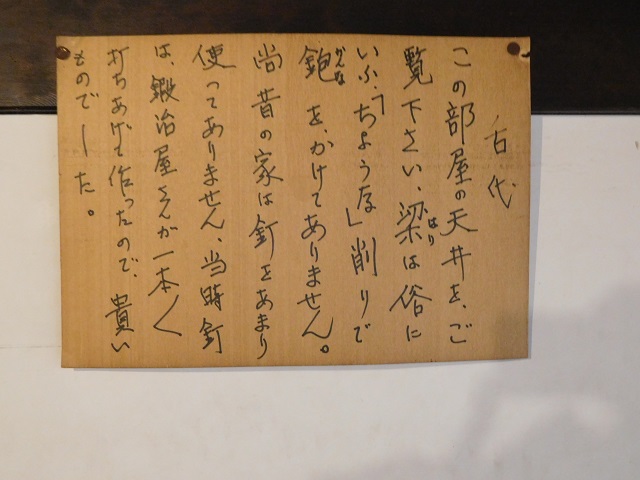 古代
この部屋の天井を、ご
覧下さい、梁は俗に
はり
いふ、「ちような」削りで
鉋を、かけてありません。
かんな
尚昔の家は釘をあまり
使ってありません、当時釘
は、鍛冶屋さんが一本〱
打ちあげて作ったので、貴い
ものでした。